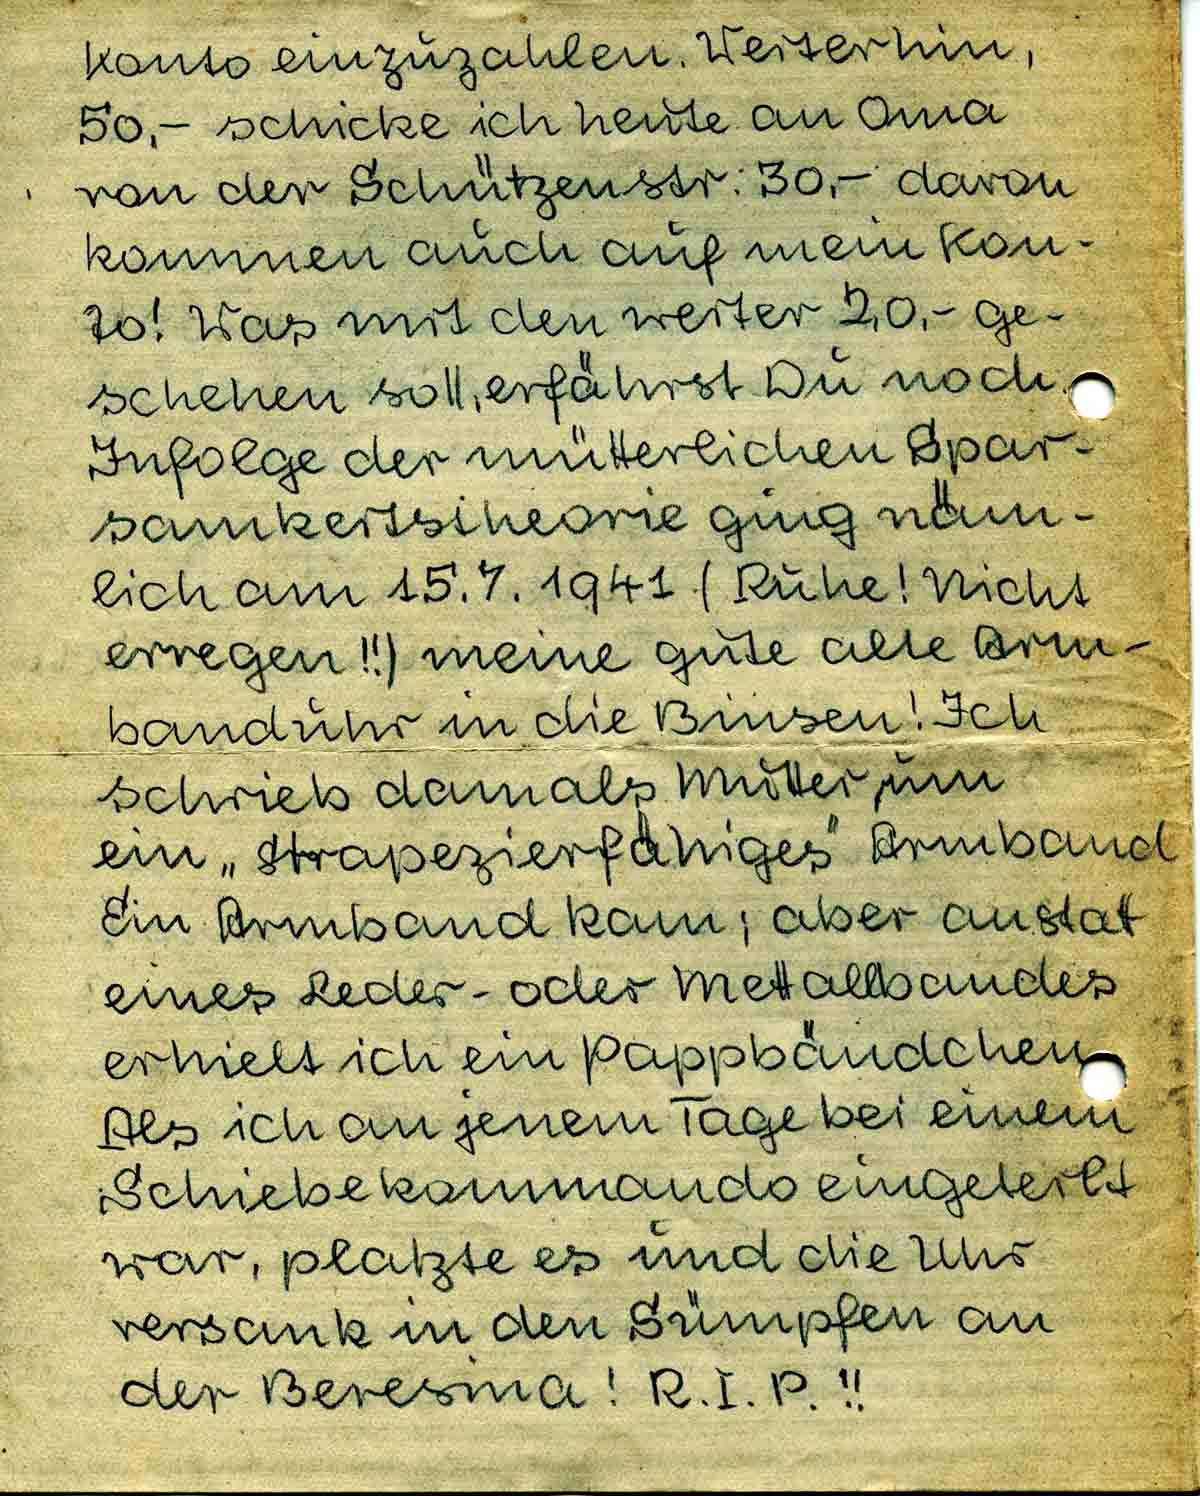 Konto einzuzahlen. Weiterhin,
50,- schicke ich heute an Oma
von der Schützenstr. 30,- davon
kommen auch auf mein Kon-
to! Was mit den weiter 20,- ge-
schehen soll, erfährst Du noch.
Infolge der mütterlichen Spar-
samkeitstheorie ging näm-
lich am 15.7.1941 (Ruhe! Nicht
erregen!!) meine gute alte Arm-
banduhr in die Binsen! Ich
schrieb damals Mutter, um
ein „strapezierfähiges" Armband
Ein Armband kam; aber anstatt
eines Leder- oder Mettallbandes
erhielt ich ein Pappbändchen
Als ich an jenem Tage bei einem
Schiebekommando eingeteilt
war, platzte es und die Uhr
versank in den Sümpfen an
der Beresina! R.I.P.!!